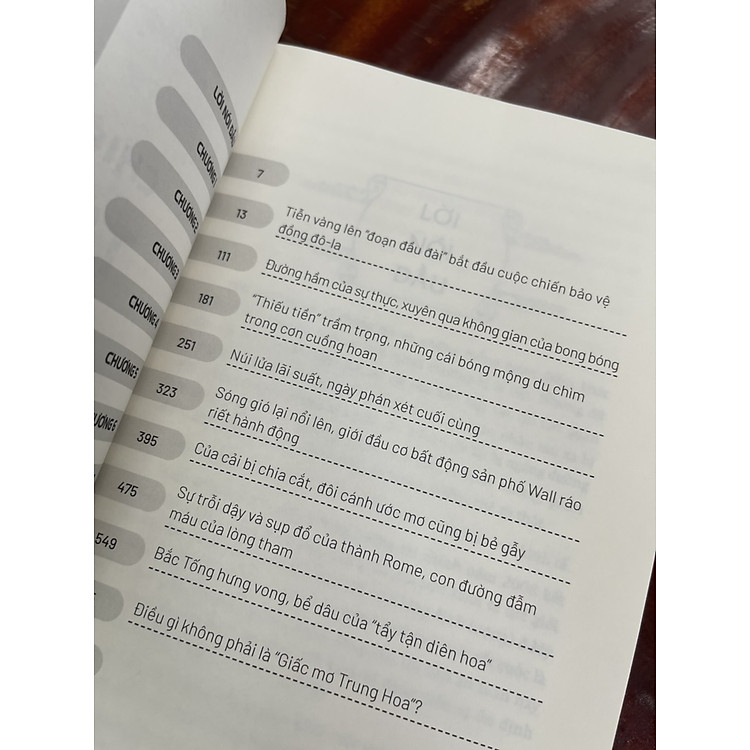 LỜI NÓI ĐẦ
7
CHƯƠNG
13
Tiễn vàng lên "đoạn đầu đài" bắt đầu cuộc chiến bảo vệ
đồng đô-la
CHƯƠNG 2
111
Đường hầm của sự thực, xuyên qua không gian của bong bóng
CHƯƠNG 3
181
"Thiếu tiền" trầm trọng, những cái bóng mộng du chìm
trong cơn cuồng hoan
CHƯƠNG 4
251
Núi lửa lãi suất, ngày phán xét cuối cùng
CHƯƠNG 5
323
Sóng gió lại nổi lên, giới đầu cơ bất động sản phố Wall ráo
riết hành động
ƯƠNG 6
395
Của cải bị chia cắt, đôi cánh ước mơ cũng bị bẻ gẫy
475
Sự trỗi dậy và sụp đổ của thành Rome, con đường đẫm
máu của lòng tham
549
Bắc Tống hưng vong, bể dâu của "tẩy tận diên hoa"
Điều gì không phải là "Giấc mơ Trung Hoa"?